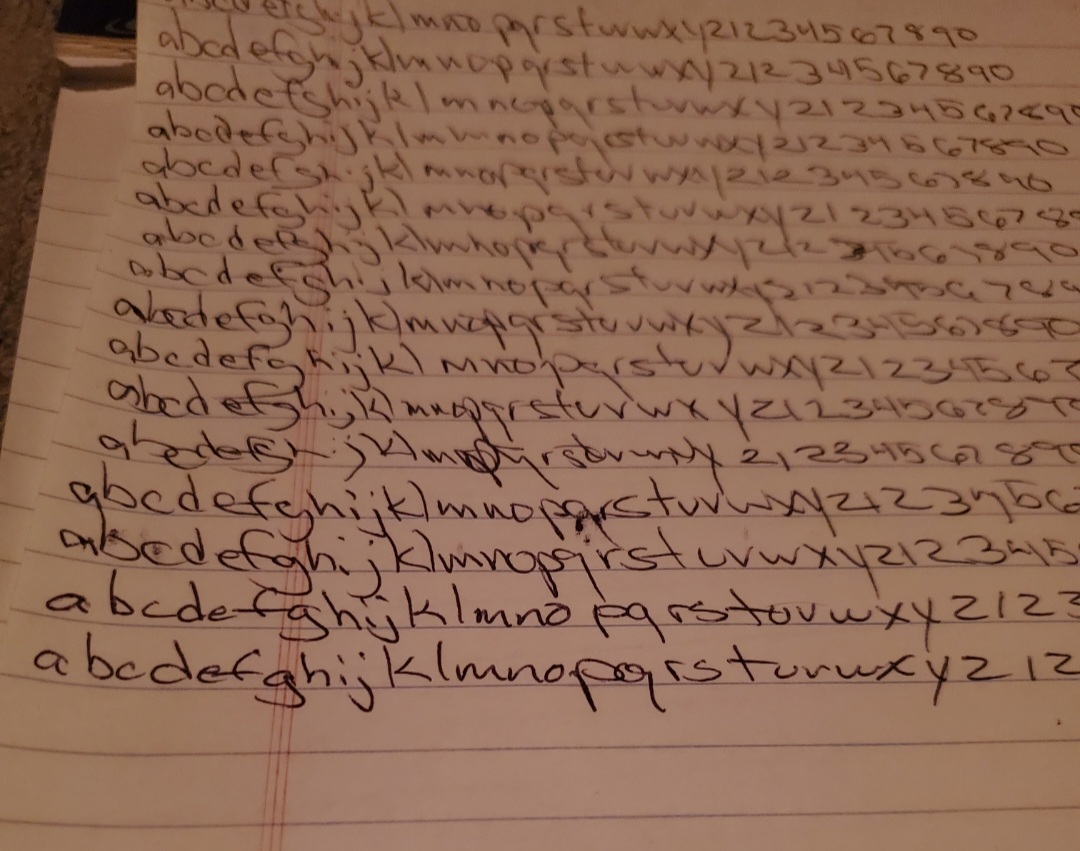 abcdefghijklmnopqrstuvwxyz1234567890
abcdefghijklmnopqrstuvwxyz1234567890
abcdefghijklmnopqrstuvwxyz1234567890
abcdefghijklmmnopqrstuvwxyz1234567890
abcdefghijklmnopqrstuvwxyz1234567890
abcdefghijklmnopqrstuvwxyz123456789
abcdefghijklmnopqrstuvwxyz1234567890
abcdefghijklmnopqrstuvwxyz123456789
abcdefghijklmnopqrstuvwxyz1234567890
abcdefghijklmnopqrstuvwxyz1234567
abcdefghijklmnopqrstuvwxyz1234567890
abcdefghijklmnopqrstuvwxyz1234567890
abcdefghijklmnopqrstuvwxyz123456
abcdefghijklmnopqrstuvwxyz12345
abcdefghijklmnopqrstuvwxyz123
abcdefghijklmnopqrstuvwxyz12